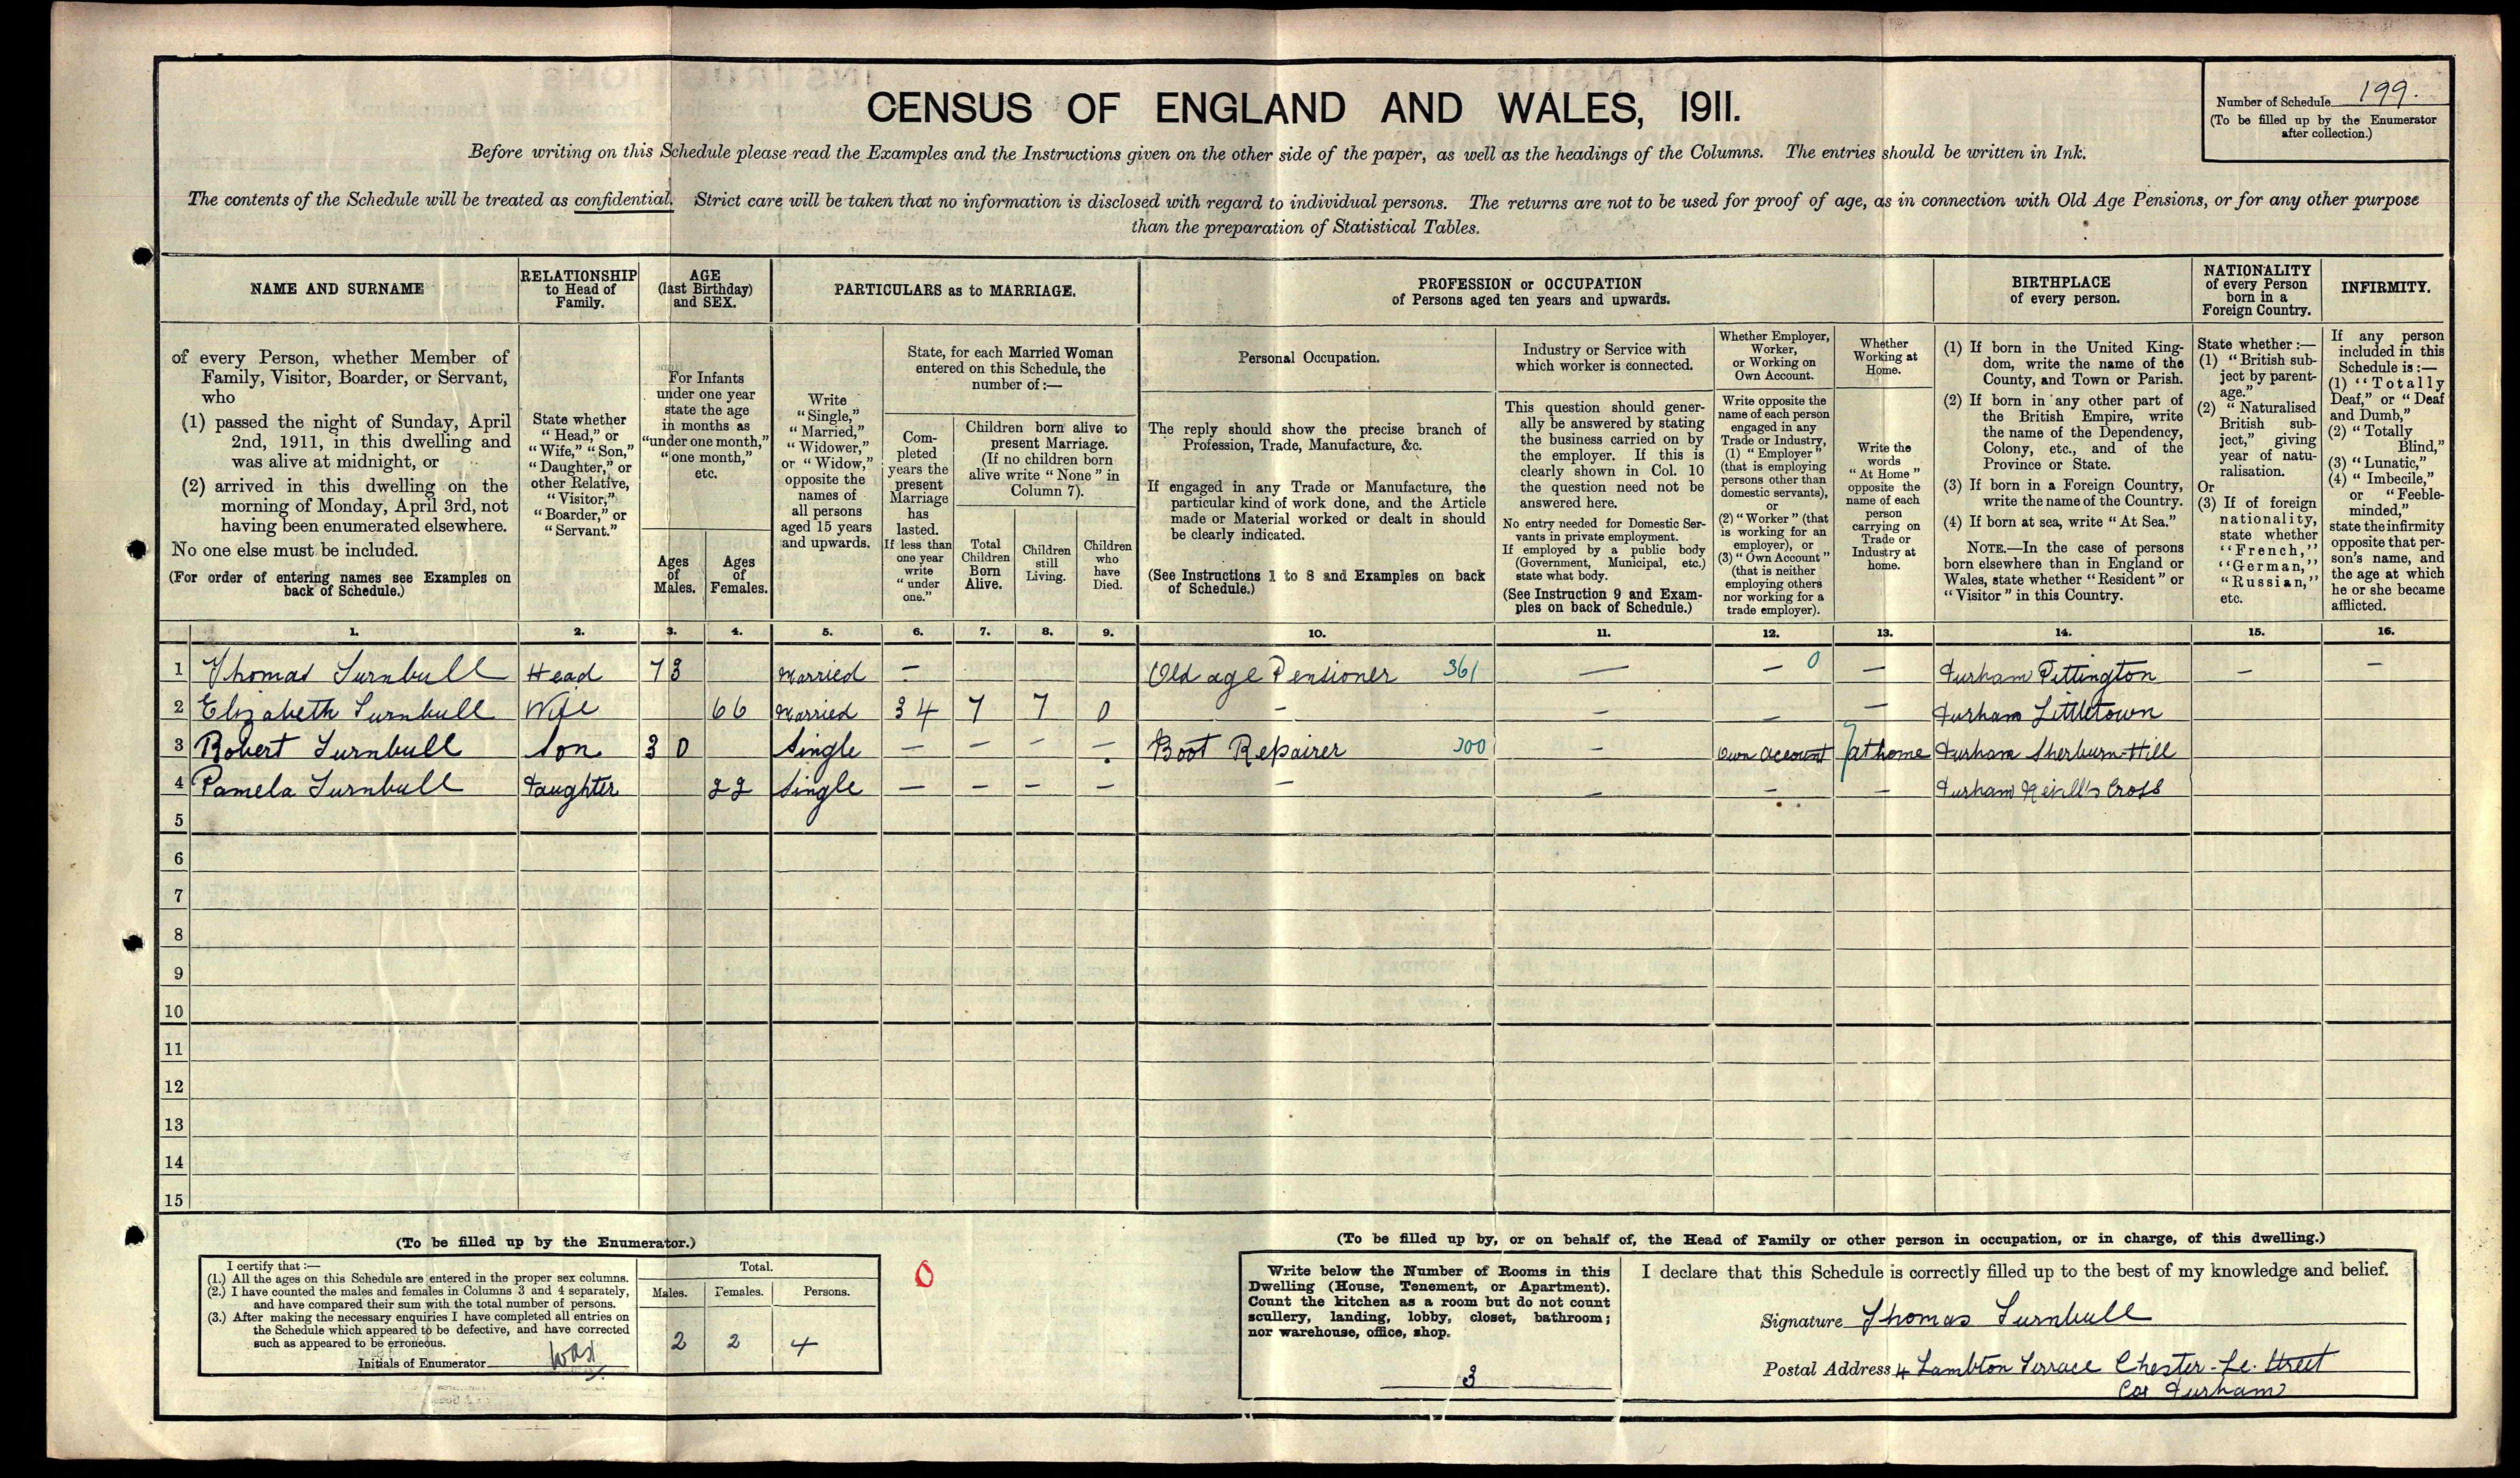 CENSUS OF ENGLAND AND WALES, 1911.
Number of Schedule 199.
(To be filled up by the Enumerator
after collection.)
Before writing on this Schedule please read the Examples and the Instructions given on the other side of the paper, as well as the headings of the Columns. The entries should be written in Ink.
The contents of the Schedule will be treated as confidential. Strict care will be taken that no information is disclosed with regard to individual persons. The returns are not to be used for proof of age, as in connection with Old Age Pensions, or for any other purpose
than the preparation of Statistical Tables.
NAME AND SURNAME
RELATIONSHIP
to Head of
Family.
AGE
(last Birthday)
and SEX.
PARTICULARS as to MARRIAGE.
PROFESSION or OCCUPATION
of Persons aged ten years and upwards.
BIRTHPLACE
of every person.
NATIONALITY
of every Person
born in a
Foreign Country.
INFIRMITY.
of every Person, whether Member of
Family, Visitor, Boarder, or Servant,
who
(1) passed the night of Sunday, April
2nd, 1911, in this dwelling and
was alive at midnight, or
(2) arrived in this dwelling on the
morning of Monday, April 3rd, not
having been enumerated elsewhere.
No one else must be included.
(For order of entering names see Examples on
back of Schedule.)
State whether
"Head," or
"Wife," "Son,"
"Daughter," or
other Relative,
"Visitor,"
"Boarder," or
"Servant."
For Infants
under one year
state the age
in months as
"under one month,"
"one month,"
etc.
Ages
of
Males.
Ages
of
Females.
Write
"Single,"
"Married,"
"Widower,"
or "Widow,"
opposite the
names of
all persons
aged 15 years
and upwards.
State, for each Married Woman
entered on this Schedule, the
number of:—
Com-
pleted
years the
present
Marriage
has
lasted.
If less than
one year
write
"under
one."
Children born alive to
present Marriage.
(If no children born
alive write "None" in
Column 7).
Total
Children
Born
Alive.
Children
still
Living.
Children
who
have
Died.
Personal Occupation.
The reply should show the precise branch of
Profession, Trade, Manufacture, &c.
If engaged in any Trade or Manufacture, the
particular kind of work done, and the Article
made or Material worked or dealt in should
be clearly indicated.
(See Instructions 1 to 8 and Examples on back
of Schedule.)
Industry or Service with
which worker is connected.
This question should gener-
ally be answered by stating
the business carried on by
the employer. If this is
clearly shown in Col. 10
the question need not be
answered here.
No entry needed for Domestic Ser-
vants in private employment.
If employed by a public body
(Government, Municipal, etc.)
state what body.
(See Instruction 9 and Exam-
ples on back of Schedule.)
Whether Employer,
Worker,
or Working on
Own Account.
Write opposite the
name of each person
engaged in any
Trade or Industry,
(1) "Employer"
(that is employing
persons other than
domestic servants),
or
(2) "Worker" (that
is working for an
employer), or
(3) "Own Account"
(that is neither
employing others
nor working for a
trade employer).
Whether
Working at
Home.
Write the
words
"At Home"
opposite the
name of each
person
carrying on
Trade or
Industry at
home.
(1) If born in the United King-
dom, write the name of the
County, and Town or Parish.
(2) If born in any other part of
the British Empire, write
the name of the Dependency,
Colony, etc., and of the
Province or State.
(3) If born in a Foreign Country,
write the name of the Country.
(4) If born at sea, write "At Sea."
NOTE.—In the case of persons
born elsewhere than in England or
Wales, state whether "Resident" or
"Visitor" in this Country.
State whether:—
(1) "British sub-
ject by parent-
age."
(2) "Naturalised
British sub-
ject," giving
year of natu-
ralisation.
Or
(3) If of foreign
nationality,
state whether
"French,"
"German,"
"Russian,"
etc.
If any person
included in this
Schedule is:—
(1) "Totally
Deaf," or "Deaf
and Dumb,"
(2) "Totally
Blind,"
(3) "Lunatic,"
(4) "Imbecile,"
or "Feeble-
minded,"
state the infirmity
opposite that per-
son's name, and
the age at which
he or she became
afflicted.
1. 2. 3. 4. 5. 6. 7. 8. 9. 10. 11. 12. 13. 14. 15. 16.
1 Thomas Turnbull Head 73 Married — Old age Pensioner 361 — — 0 — Durham Pittington — —
2 Elizabeth Turnbull Wife 66 Married 34 7 7 0 — — — — Durham Littletown
3 Robert Turnbull Son 30 Single — — — — Boot Repairer 300 — Own Account at home Durham Sherburn-Hill
4 Pamela Turnbull Daughter 22 Single — — — — — — — — Durham Nevill's Cross
5
6
7
8
9
10
11
12
13
14
15
(To be filled up by the Enumerator.)
I certify that:—
(1.) All the ages on this Schedule are entered in the proper sex columns.
(2.) I have counted the males and females in Columns 3 and 4 separately,
and have compared their sum with the total number of persons.
(3.) After making the necessary enquiries I have completed all entries on
the Schedule which appeared to be defective, and have corrected
such as appeared to be erroneous.
Initials of Enumerator
Total.
Males. Females. Persons.
2 2 4
0
(To be filled up by, or on behalf of, the Head of Family or other person in occupation, or in charge, of this dwelling.)
Write below the Number of Rooms in this
Dwelling (House, Tenement, or Apartment).
Count the kitchen as a room but do not count
scullery, landing, lobby, closet, bathroom;
nor warehouse, office, shop.
3
I declare that this Schedule is correctly filled up to the best of my knowledge and belief.
Signature Thomas Turnbull
Postal Address 4 Lambton Terrace Chester-Le-Street
Co Durham